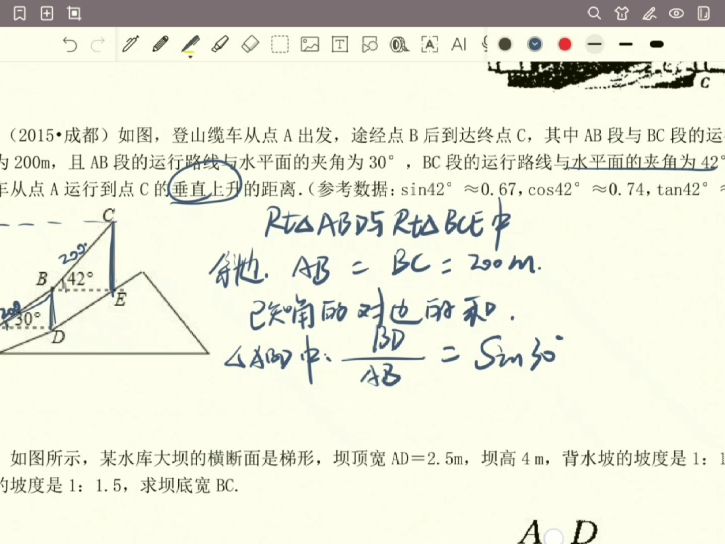 C
（2015•成都）如图，登山缆车从点 A 出发，途经点 B 后到达终点 C，其中 AB 段与 BC 段的运
为 200m，且 AB 段的运行路线与水平面的夹角为 30°，BC 段的运行路线与水平面的夹角为 42°
车从点 A 运行到点 C 的垂直上升的距离.（参考数据：sin42°≈0.67，cos42°≈0.74，tan42°≈
C
Rt△ABD与Rt△BCE中
200
B 42°
斜边. AB = BC = 200m.
E
200
30°
D
已知角的对边的和.
△ABD中. BD/AB = Sin30°
如图所示，某水库大坝的横断面是梯形，坝顶宽 AD＝2.5m，坝高 4 m，背水坡的坡度是 1：1
的坡度是 1：1.5，求坝底宽 BC.
A D